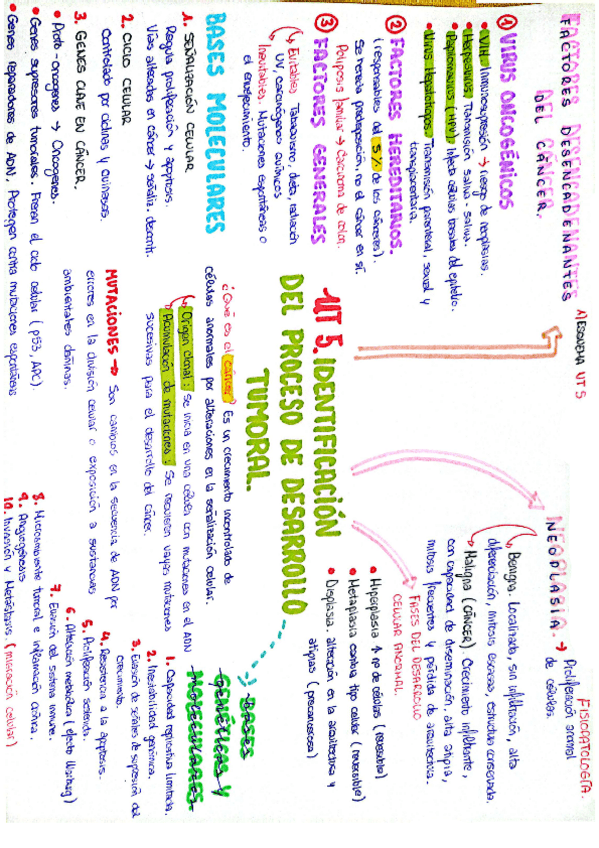 A) ESQUEMA UT5
FACTORES DESENCADENANTES
DEL CÁNCER.
① VIRUS ONCOGÉNICOS
• VIH: Inmunosupresión → riesgo de neoplasias.
• Herpesvirus: Transmisión saliva - saliva.
• Papilomavirus (HPV): infecta células basales del epitelio.
• Virus Hepatotropos: Transmisión parenteral, sexual y
transplacentaria.
② FACTORES HEREDITARIOS.
(responsables del 5% de los cánceres).
Se hereda predisposición, no el cáncer en sí.
Poliposis familiar → Carcinoma de colon.
③ FACTORES GENERALES
Evitables. Tabaquismo, dieta, radiación
UV, carcinógenos químicos
Inevitables. Mutaciones espontáneas o
el envejecimiento.
BASES MOLECULARES
1. SEÑALIZACIÓN CELULAR
Regula proliferación y apoptosis.
Vías alteradas en cáncer → señaliz. descont.
2. CICLO CELULAR
Controlado por ciclinas y quinasas.
3. GENES CLAVE EN CÁNCER.
• Proto-oncogenes → Oncogenes.
• Genes supresores tumorales. Frenan el ciclo celular (p53, APC).
• Genes reparadores de ADN. Protegen contra mutaciones espontáneas
UT 5. IDENTIFICACIÓN
DEL PROCESO DE DESARROLLO
TUMORAL.
¿Qué es el cáncer? Es un crecimiento incontrolado de
células anormales por alteraciones en la señalización celular.
Origen clonal: Se inicia en una célula con mutaciones en el ADN
Acumulación de mutaciones: Se requieren varias mutaciones
sucesivas para el desarrollo del cáncer.
MUTACIONES → Son cambios en la secuencia de ADN por
errores en la división celular o exposición a sustancias
ambientales dañinas.
FISIOPATOLOGÍA.
NEOPLASIA. → Proliferación anormal
de células.
Benigna. Localizada, sin infiltración, alta
diferenciación, mitosis escasas, estructura conservada.
Maligna (CÁNCER) Crecimiento infiltrante,
con capacidad de diseminación, alta atipia,
mitosis frecuentes y pérdida de arquitectura.
FASES DEL DESARROLLO
CELULAR ANORMAL.
• Hiperplasia ↑ nº de células (reversible)
• Metaplasia cambia tipo celular (reversible)
• Displasia. alteración en la arquitectura y
atipias (precancerosa)
BASES
GENÉTICAS Y
MOLECULARES
1. Capacidad replicativa ilimitada.
2. Inestabilidad genómica.
3. Evasión de señales de supresión del
crecimiento.
4. Resistencia a la apoptosis.
5. Proliferación sostenida.
6. Alteración metabólica (efecto Warburg)
7. Evasión del sistema inmune.
8. Microambiente tumoral e inflamación crónica.
9. Angiogénesis
10. Invasión y Metástasis. (migración celular)